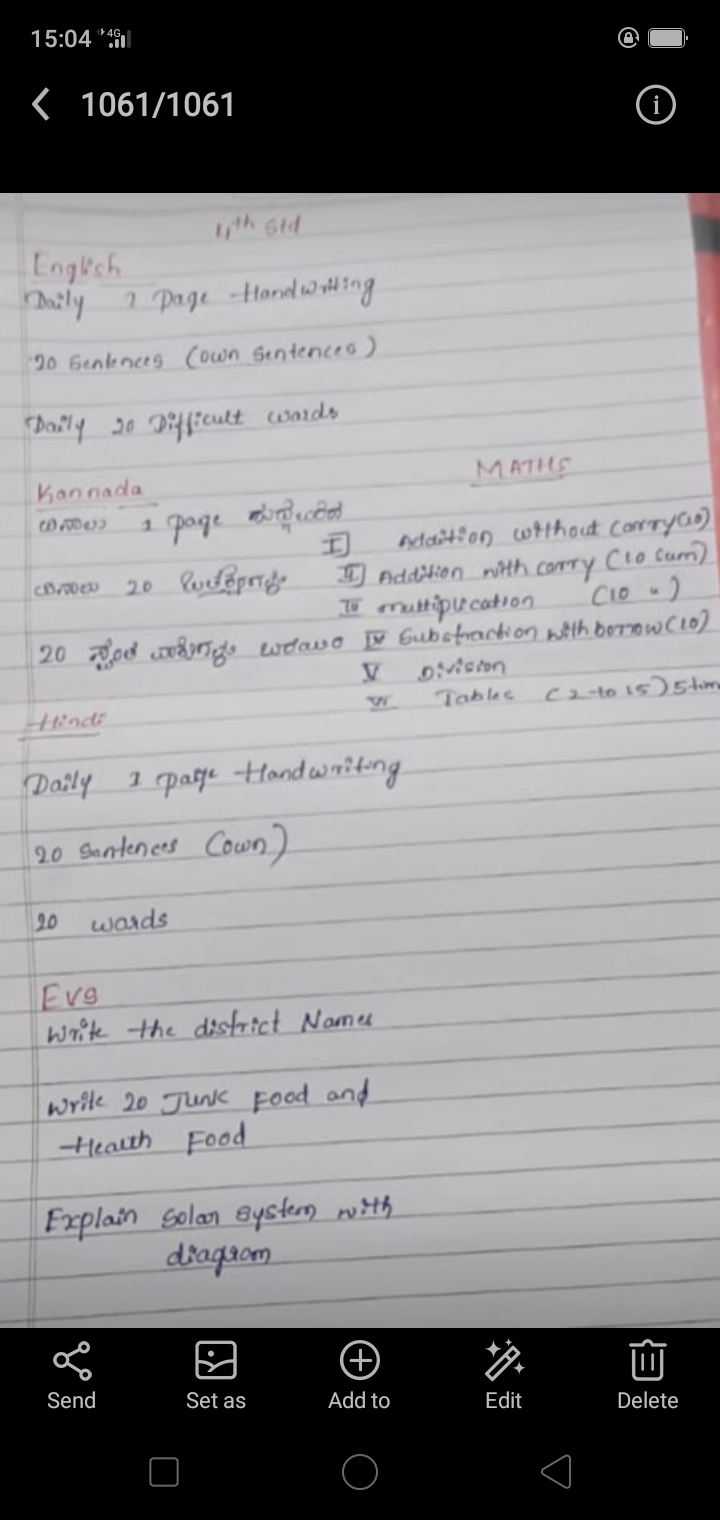 15:04 4G
1061/1061
4th Std
English
Daily 1 Page Handwriting
20 Sentences (own sentences)
Daily 20 Difficult wards
Kannada
1 page
20
20 ಸ್ವಂತ ವಾಕ್ಯಗಳು
MATHS
I] Addition without carry(10)
II] Addition with carry (10 sum)
III multiplication (10 ")
IV Substraction with borrow(10)
V Division
VI Tables (2 to 15) 5
Hindi
Daily 1 page Handwriting
20 Sentences (own)
20 wards
EVS
Write the district Names
Write 20 Junk Food and
Health Food
Explain Solar System with
diagram
Send Set as Add to Edit Delete